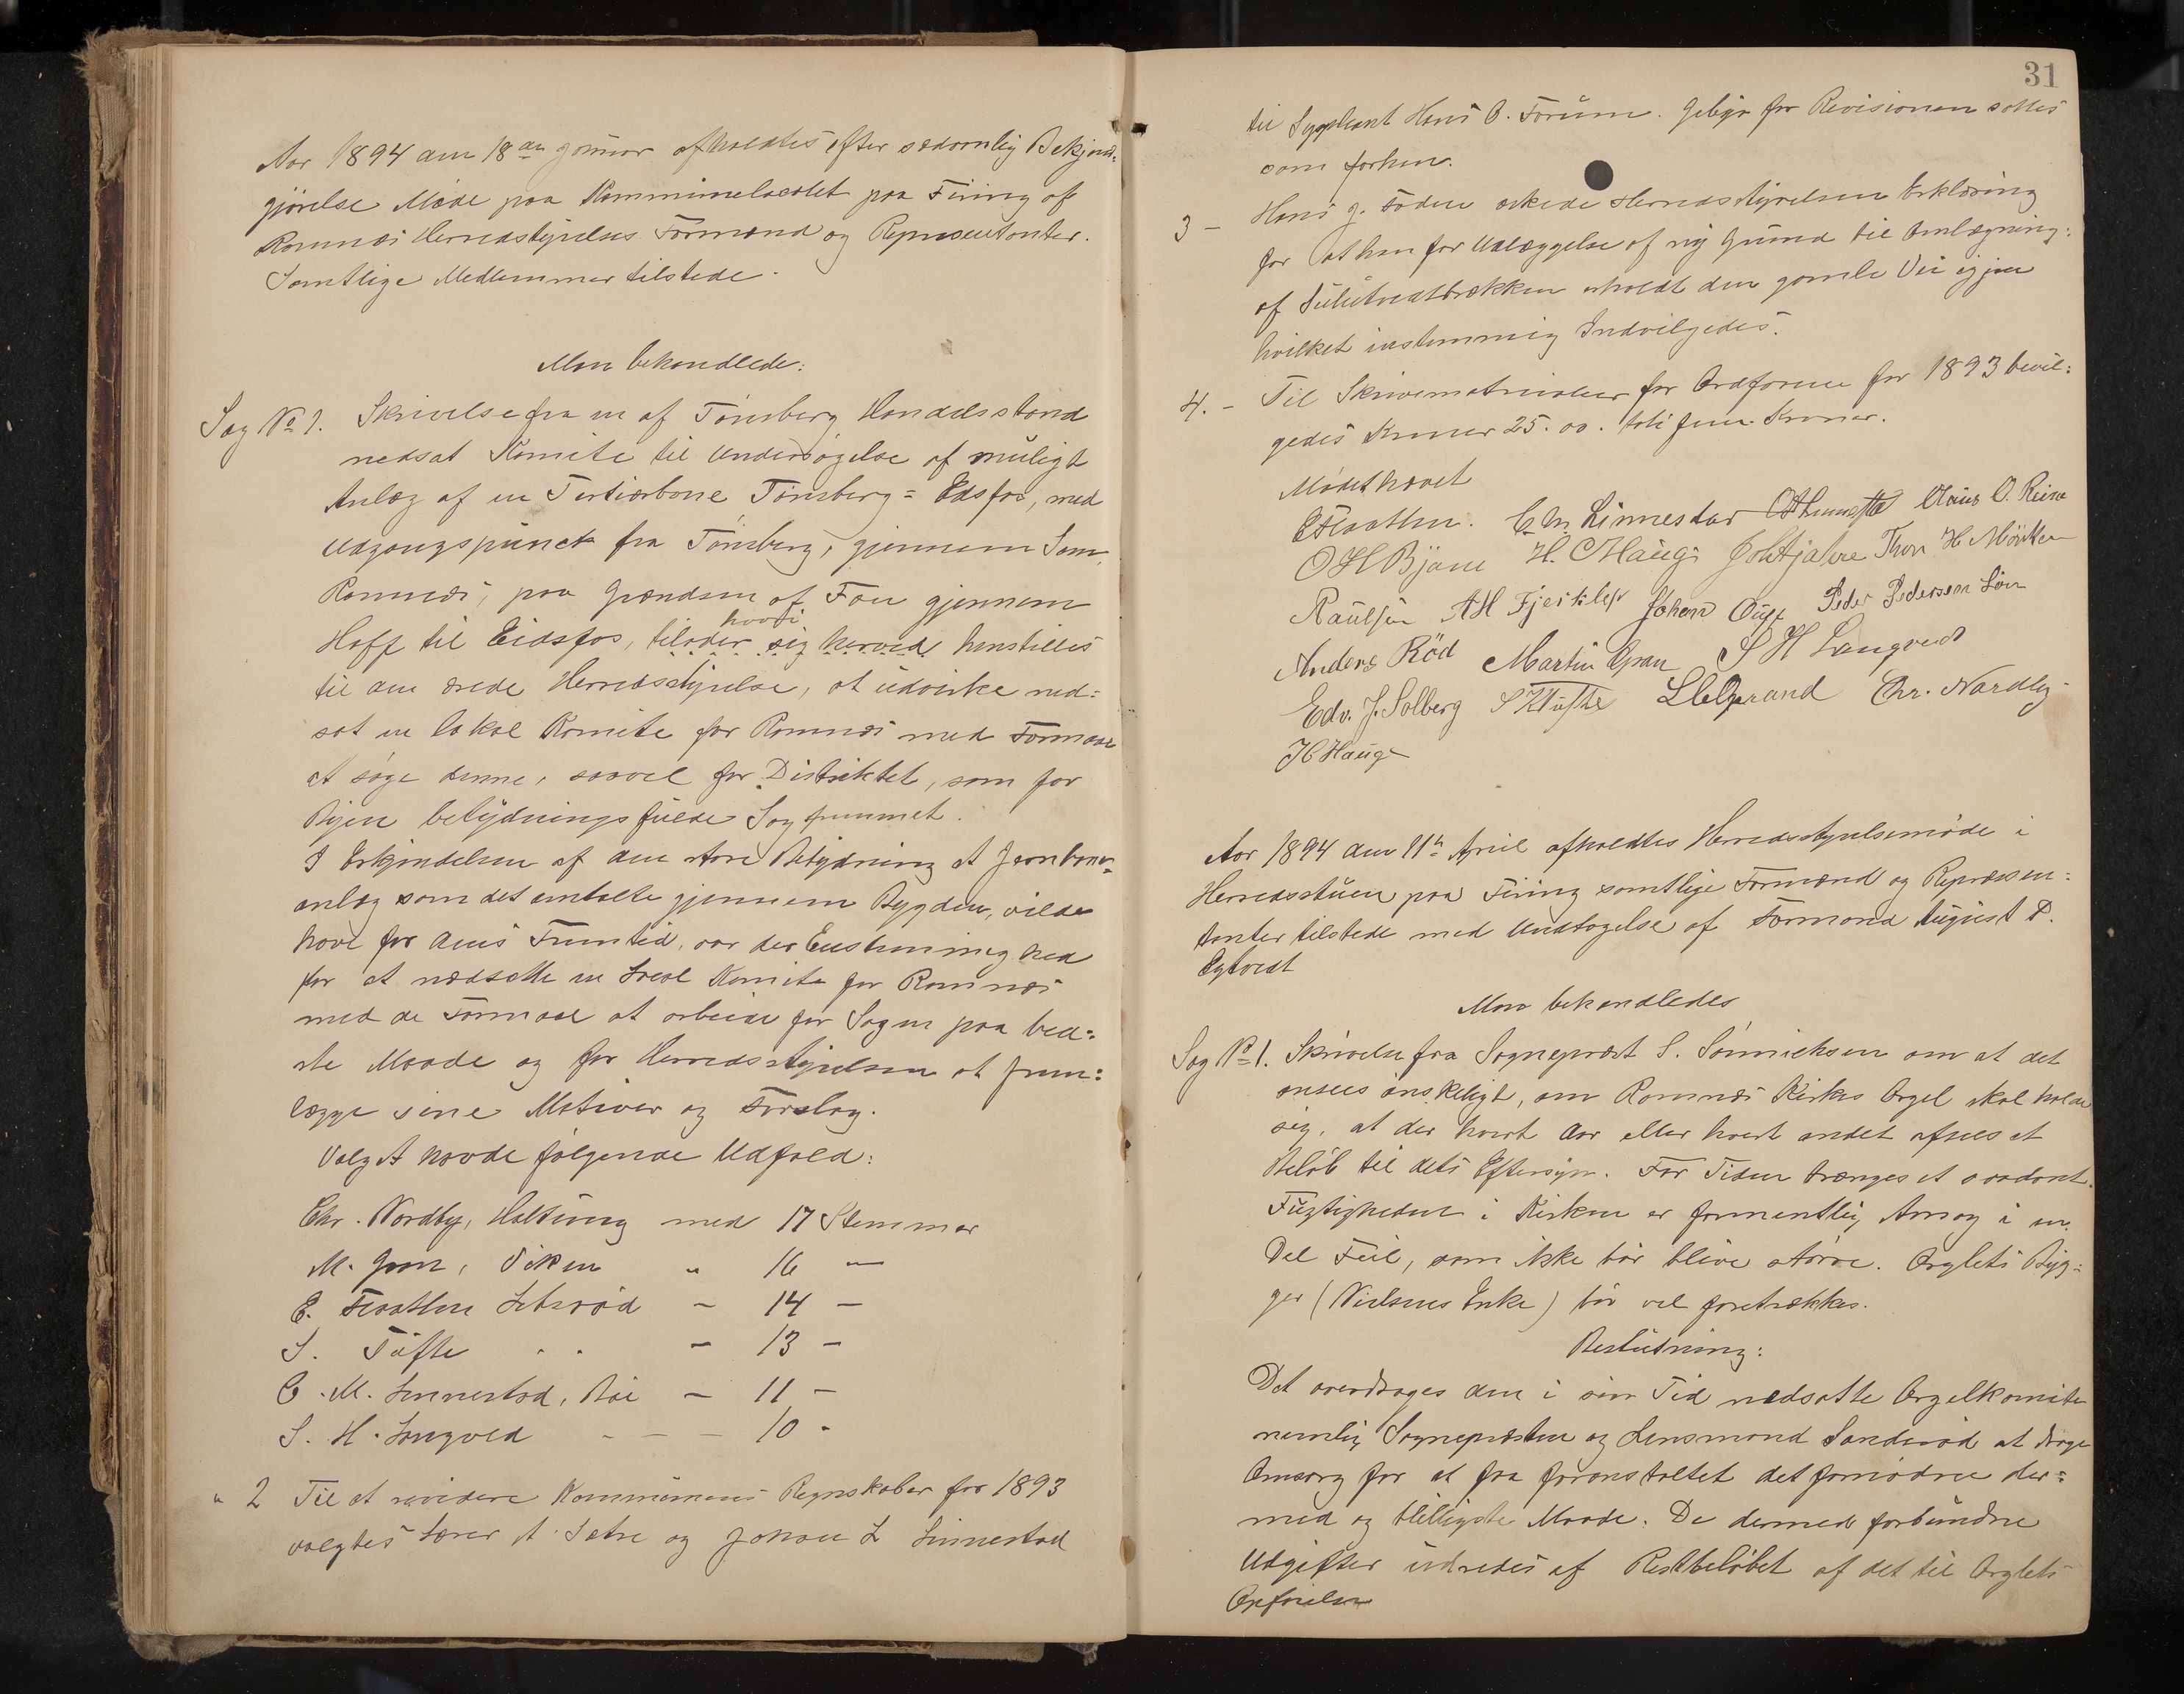 Aar 1894 den 18de januar afholdtes efter sædvanlig Bekjendt-
gjørelse Møde paa Kommunelocalet paa Firing af
Ramnæs Herredstyrelses Formænd og Repræsentanter.
Samtlige Medlemmer tilstede.
Man behandlede:
Sag No 1. Skrivelse fra en af Tønsberg Handelsstand
nedsat Komite til Undersøgelse af muligt
Anlæg af en Tertiærbane Tønsberg = Edsfos, med
Udgangspunct fra Tønsberg, gjennem Sem,
Ramnæs, paa Grændsen af Fon gjennem
hvori
Hoff til Eidsfos, tilader sig herved henstilles
til den ærede Herredsstyrelse, at udvirke ned=
sat en lokal Komite for Ramnæs med Formaal
at søge denne, saavel for Distriktet, som for
Byen betydningsfulde Sag fremmet.
I Erkjendelsen af den store Betydning et Jernbane=
anlæg som det omtalte gjennem Bygden, vilde
have for dens Fremtid, var der Enstemmighed
for at nedsætte en Local Komite for Ramnæs
med de Formaal at arbeide for Sagen paa bed=
ste Maade og for Herredsstyrelsen at frem=
lægge sine Motiver og Forslag.
Valget havde følgende Udfald:
Chr. Nordby, Haltung med 17 Stemmer
M. Gran, Viken " 16 —
E. Flaathen Sebrød — 14 —
S. Tufte . . — 13 —
C. M. Linnestad, Bøe — 11 —
S. H. Langved - — — 10 -
" 2 Til at revidere Kommunens Regnskaber for 1893
valgtes Lærer A. Sætre og Johan L Linnestad
31
til Supleant Hans O. Forum. Gebyr for Revisionen sættes
som forhen.
3 - Hans J. Foden æskede Herredsstyrelsens Erklæring
for at han for Udlæggelse af ny Grund til Omlægning
af bakken erholdt den gamle Vei igjen
hvilket enstemmig Indvilgedes.
4. - Til Skrivematrialier for Ordføreren for 1893 bevil=
gedes Kroner 25.00. toti fem Kroner.
Mødet hævet
E Flaathen. C. M. Linnestad Claus O. Reine
O H Bjåne H. C Haugs Thor H Mörken
Paulsen A H Fjerklep Johan Peder Pedersen Lön
Anders Röd Martin Gran S H Langvedt
Edv. J. Solberg S K Tufte Chr. Nordby
H Hauge
Aar 1894 den 11te April afholdtes Herredsstyrelsemøde i
Herredsstuen paa Firing samtlige Formænd og Repræsen=
tanter tilstede med Undtagelse af Formand August P.
Egtvedt
Man behandledes
Sag No 1. Skrivelse fra Sogneprest S. Sønnichsen om at det
ansees ønskeligt, om Ramnæs Kirkes Orgel skal holde
sig, at der hvert Aar eller hvert andet afsees et
Beløb til dets Eftersyn. For Tiden trænges et saadant.
Fugtigheden i Kirken er formentlig Aarsag i en
Del Feil, som ikke bør blive større. Orglets Byg=
ger (Nielsens Enke) bør vel foretrækkes.
Beslutning:
Det overdrages den i sin Tid nedsatte Orgelkomite
nemlig Sognepresten og Lensmand Sanderød at drage
Omsorg for at faa foranstaltet det fornødne der=
med og billigste Maade. De dermed forbundne
Udgifter udredes af Restbeløbet af det til Orglets
Opførelse